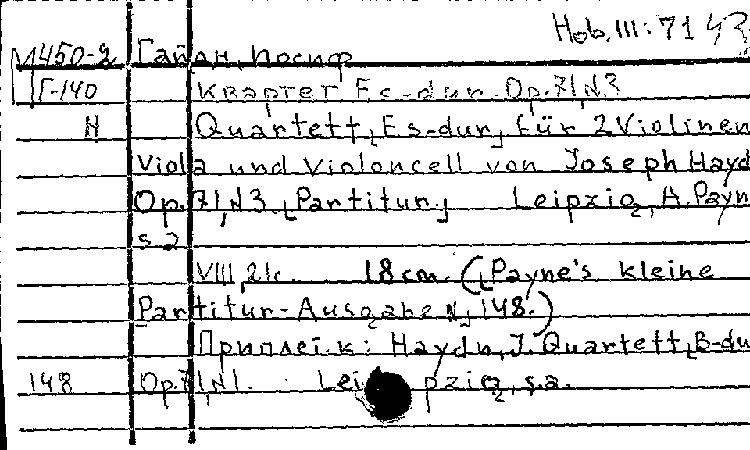 Hob. III: 71
M450-2 Гайдн, Иосиф
Г-140 Квартет Es-dur. Op.71,N3
H Quartett, Es-dur, für 2 Violinen
Viola und Violoncell von Joseph Hayd
Op.71,N3. [Partitur] Leipzig, A. Payn
s.a
VIII, 21c. 18 cm. ([Payne's kleine
Partitur-Ausgabe N, 148.)
Приплет. к: Haydn, J. Quartett, B-du
148 Op.71,N1. Leipzig, s.a.